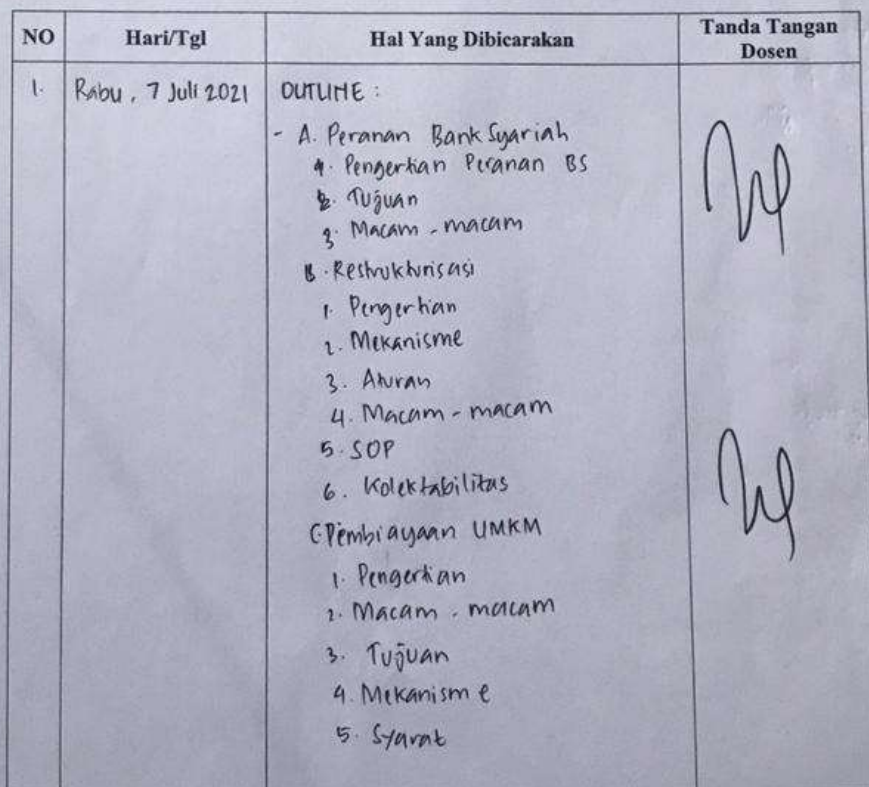 NO Hari/Tgl Hal Yang Dibicarakan Tanda Tangan Dosen
1. Rabu, 7 Juli 2021 OUTLINE :
- A. Peranan Bank Syariah
1. Pengertian Peranan BS
2. Tujuan
3. Macam - macam
B. Restrukturisasi
1. Pengertian
2. Mekanisme
3. Aturan
4. Macam - macam
5. SOP
6. Kolektabilitas
C. Pembiayaan UMKM
1. Pengertian
2. Macam - macam
3. Tujuan
4. Mekanisme
5. Syarat